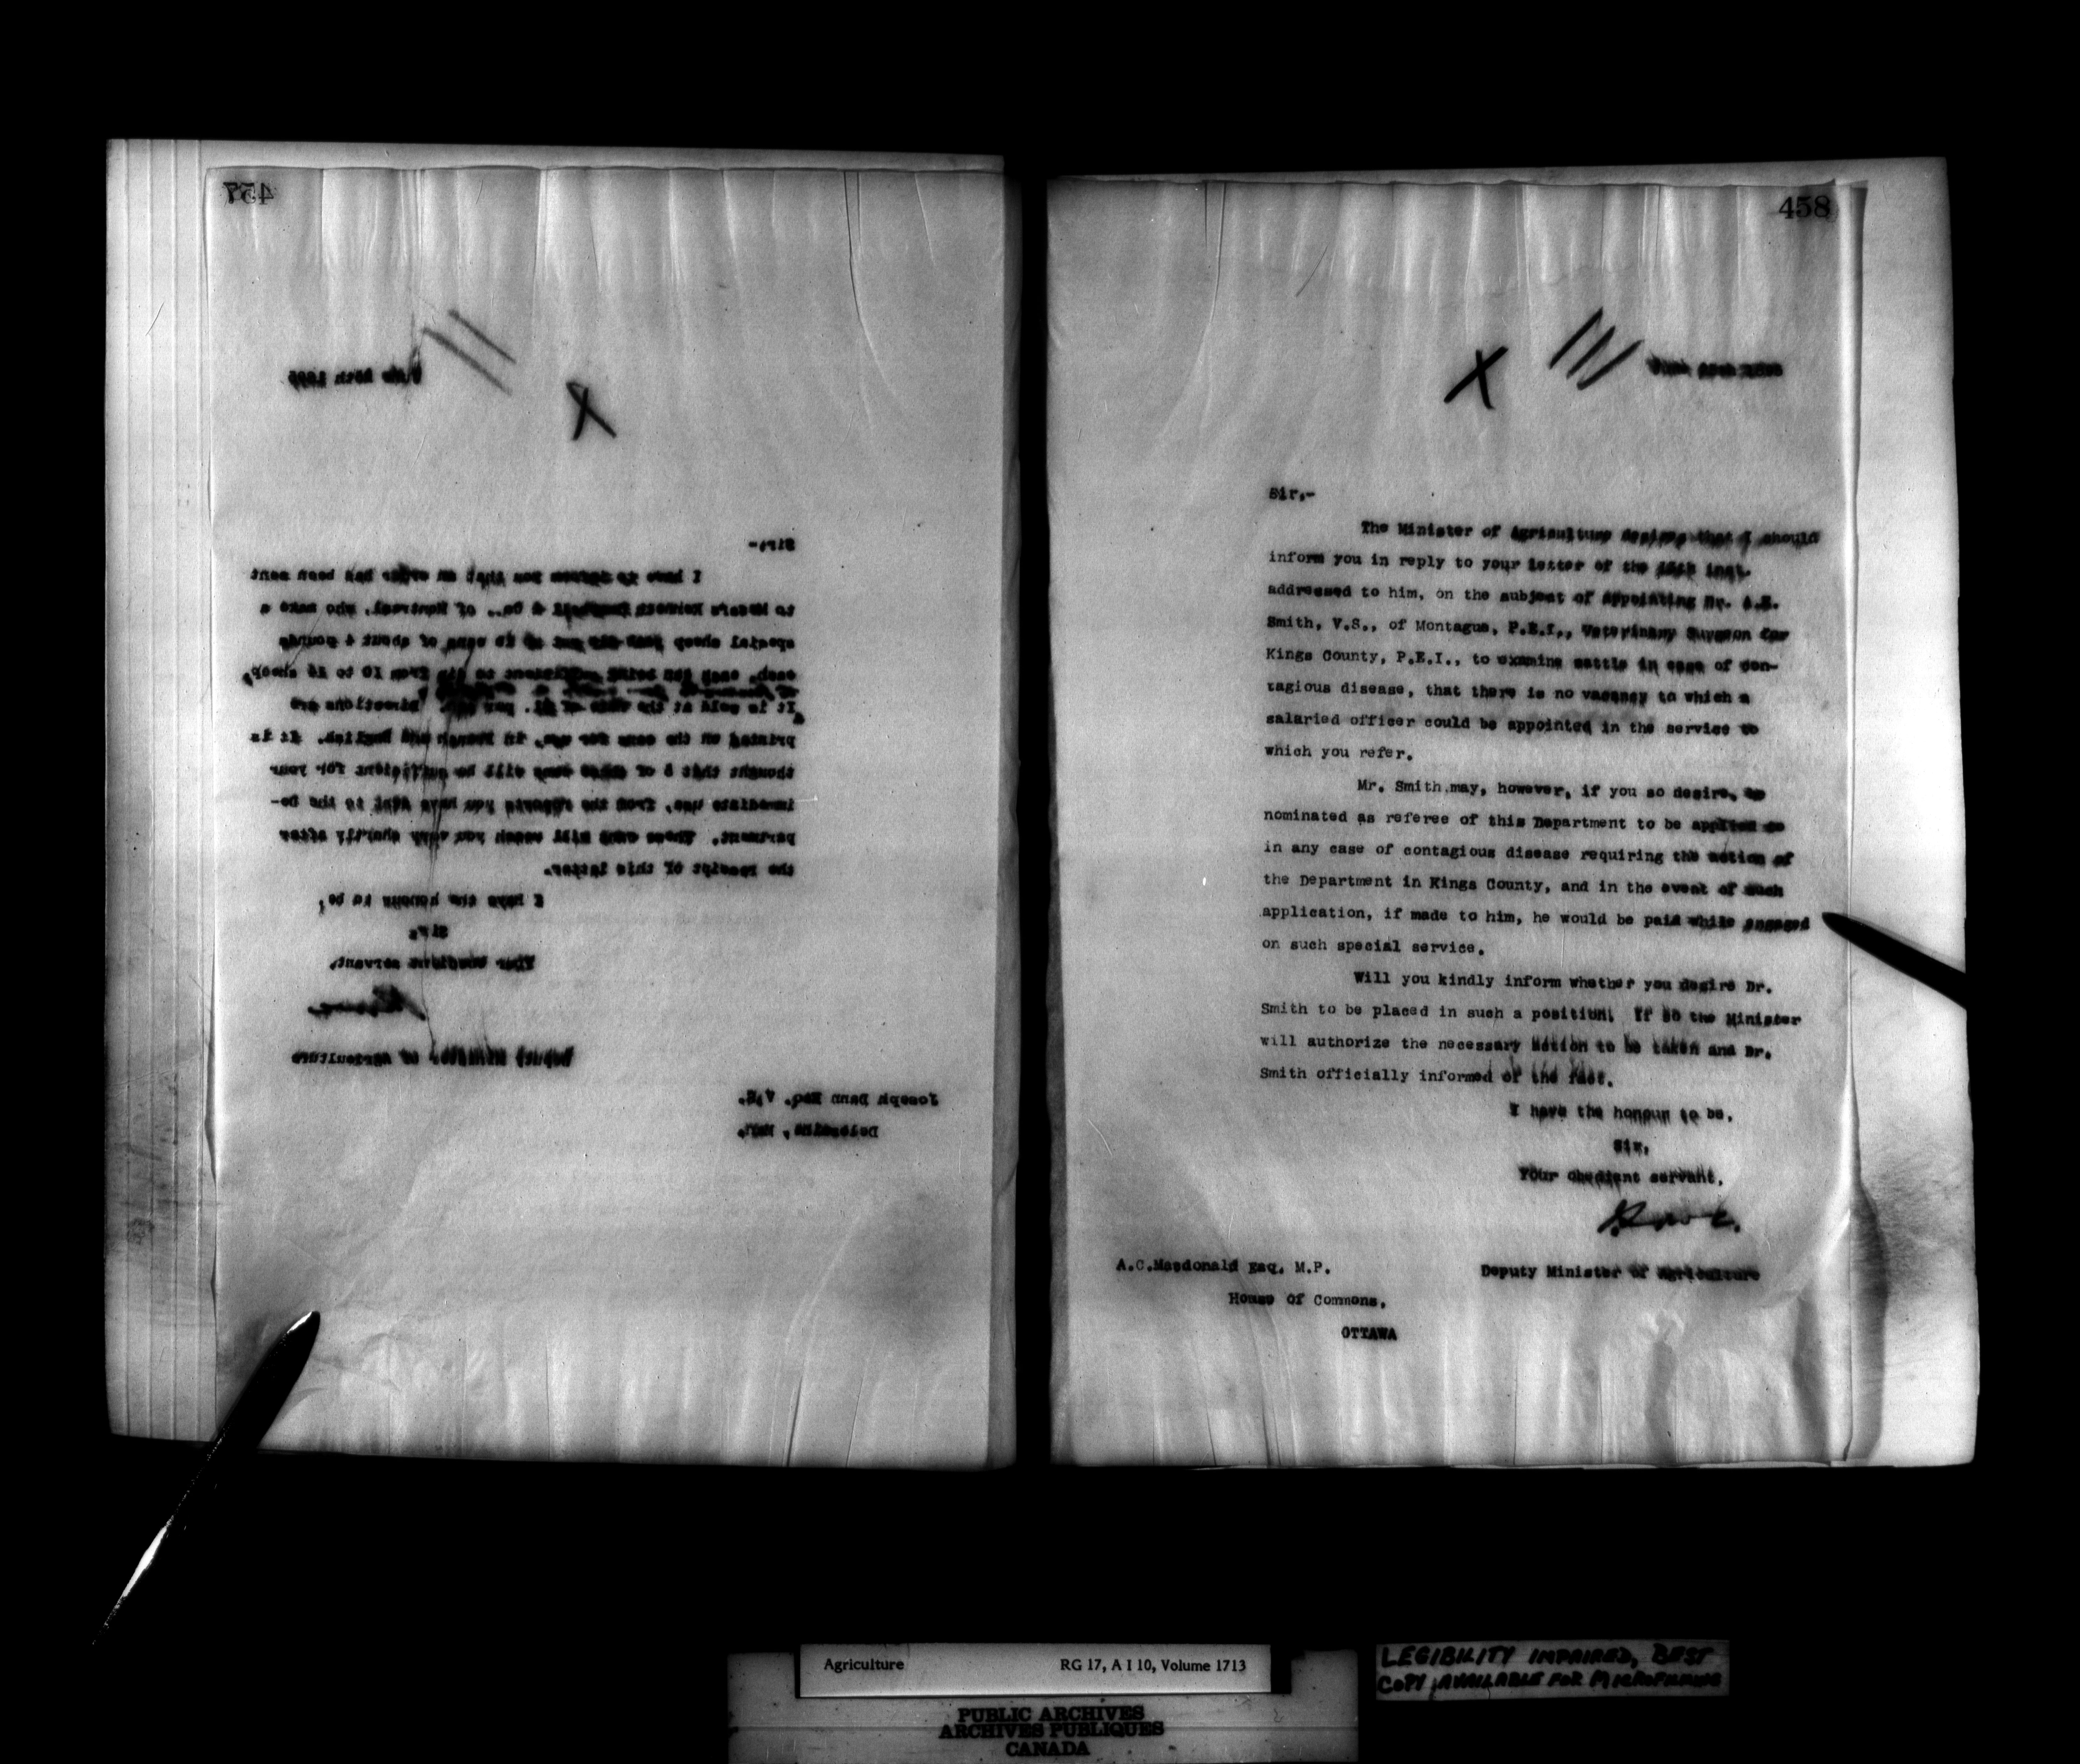 457
Sir:-
I have to inform you that an order has been sent
to Messrs Kenneth Campbell & Co., of Montreal, who make a
special sheep put up in cans of about 4 pounds
each, each can being sufficient to dip from 10 to 14 sheep,
It is sold at the rate of $1. per can. Directions are
printed on the cans for use, in French and English. It is
thought that 6 of these cans will be sufficient for your
immediate use, from the reports you have sent to the De-
partment. These cans will reach you very shortly after
the receipt of this letter.
I have the honour to be,
Sir,
Your obedient servant,
Deputy Minister of Agriculture
Joseph Dann Esq. V.S.
458
Sir,-
The Minister of Agriculture desires that I should
inform you in reply to your letter of the inst.
addressed to him, on the subject of appointing Mr. A.E.
Smith, V.S., of Montague, P.E.I., Veterinary Surgeon for
Kings County, P.E.I., to examine cattle in case of con-
tagious disease, that there is no vacancy to which a
salaried officer could be appointed in the service to
which you refer.
Mr. Smith may, however, if you so desire, be
nominated as referee of this Department to be applied to
in any case of contagious disease requiring the action of
the Department in Kings County, and in the event of such
application, if made to him, he would be paid while engaged
on such special service.
Will you kindly inform whether you desire Dr.
Smith to be placed in such a position. If so the Minister
will authorize the necessary action to be taken and Dr.
Smith officially informed of the fact.
I have the honour to be,
Sir,
Your obedient servant,
Deputy Minister of Agriculture
A.C.Macdonald Esq. M.P.
House of Commons,
OTTAWA
Agriculture RG 17, A I 10, Volume 1713
PUBLIC ARCHIVES
ARCHIVES PUBLIQUES
CANADA
LEGIBILITY IMPAIRED, BEST
COPY AVAILABLE FOR MICROFILMING